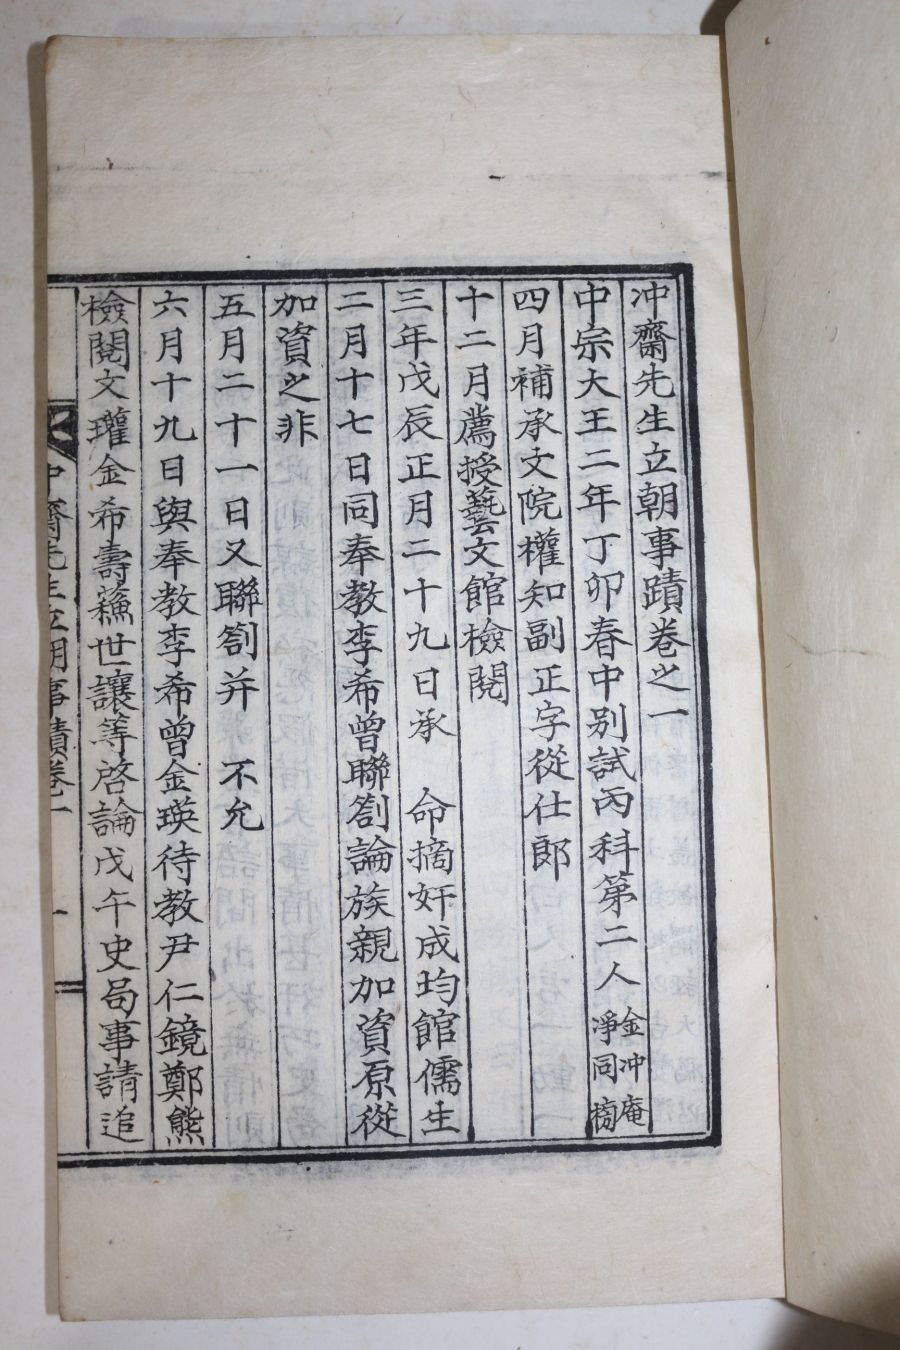 冲齋先生立朝事蹟卷之一
中宗大王二年丁卯春中别試丙科第二人金冲庵淨同榜
四月補承文院權知副正字從仕郎
十二月薦授藝文館檢閱
三年戊辰正月二十九日承 命摘奸成均館儒生
二月十七日同奉教李希曾聯劄論族親加資原從
加資之非
五月二十一日又聯劄并 不允
六月十九日與奉教李希曾金瑛待教尹仁鏡鄭熊
檢閱文瓘金希壽蘓世讓等啓論戊午史局事請追
冲齋先生立朝事蹟卷一 一